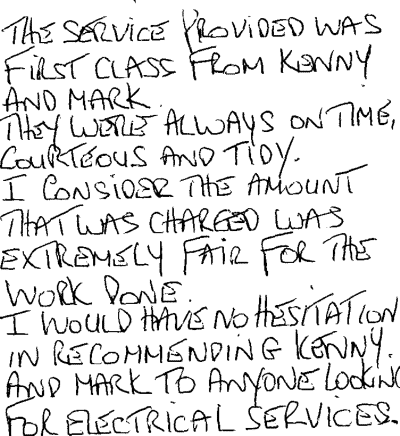 THE SERVICE PROVIDED WAS
FIRST CLASS FROM KENNY
AND MARK.
THEY WERE ALWAYS ON TIME,
COURTEOUS AND TIDY.
I CONSIDER THE AMOUNT
THAT WAS CHARGED WAS
EXTREMELY FAIR FOR THE
WORK DONE.
I WOULD HAVE NO HESITATION
IN RECOMMENDING KENNY.
AND MARK TO ANYONE LOOKING
FOR ELECTRICAL SERVICES.